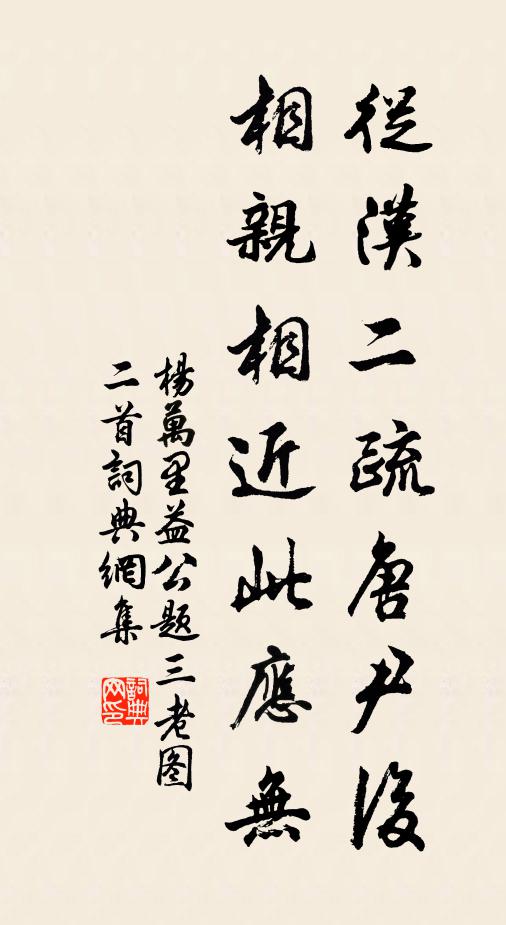 從漢二疏唐尹後
相親相近此應無
楊萬里益公題三老图
二首詞典網集
詞典网印